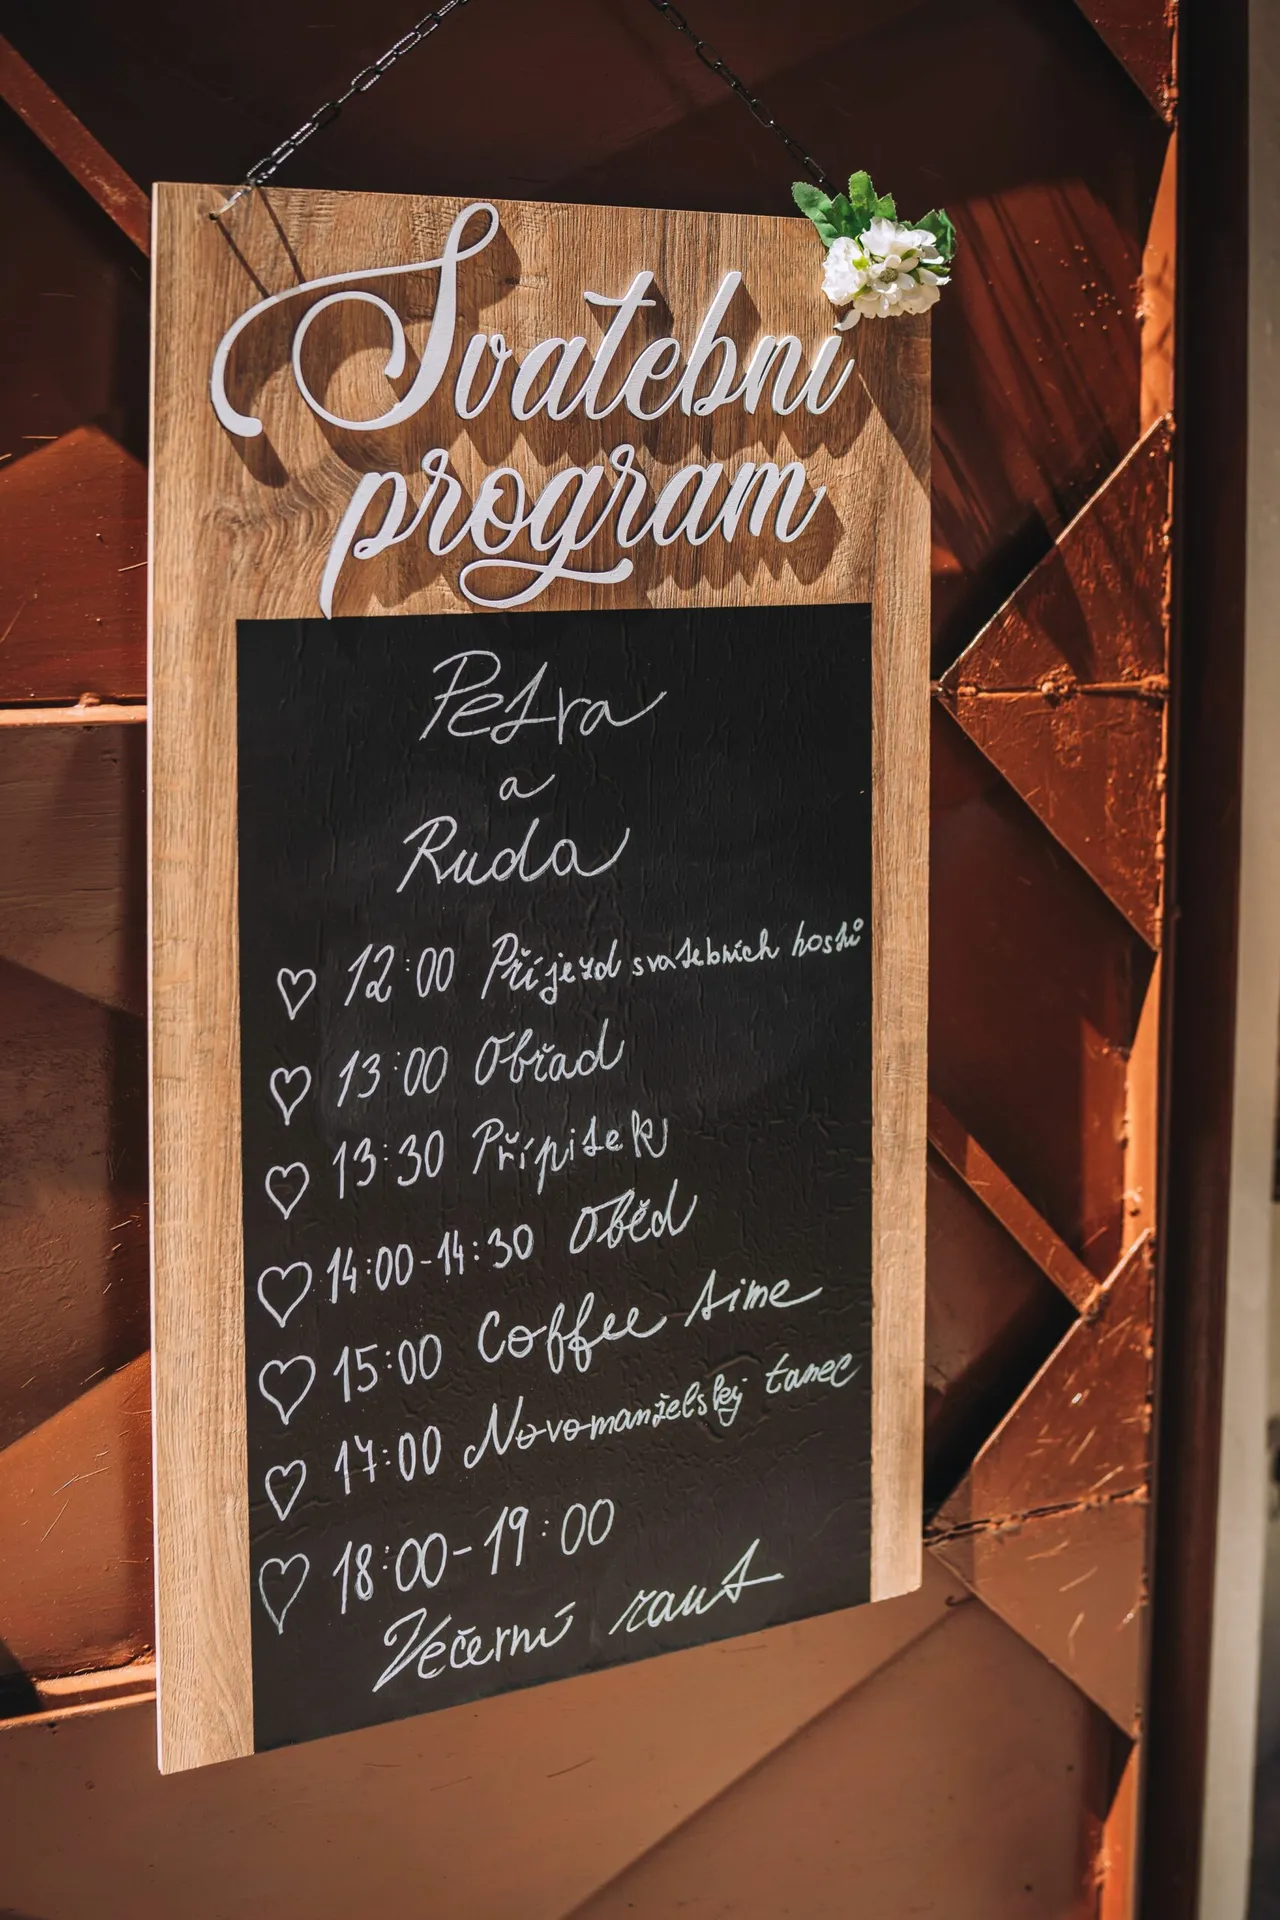 Svatební
program
Petra
a
Ruda
12:00 Příjezd svatebních hostů
13:00 Obřad
13:30 Přípitek
14:00-14:30 Oběd
15:00 Coffee time
17:00 Novomanželský tanec
18:00-19:00
Večerní raut